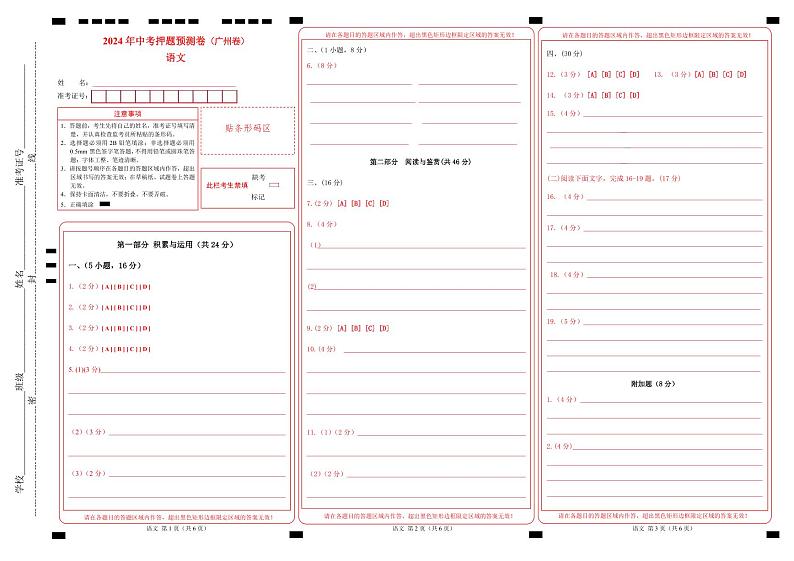 学校
班级
姓名
准考证号
密
封
线
2024 年中考押题预测卷（广州卷）
语文
姓 名：
准考证号：
注意事项
1．答题前，考生先将自己的姓名，准考证号填写清楚，并认真检查监考员所粘贴的条形码。
2．选择题必须用 2B 铅笔填涂；非选择题必须用 0.5mm 黑色签字笔答题，不得用铅笔或圆珠笔答题；字体工整、笔迹清晰。
3．请按题号顺序在各题目的答题区域内作答，超出区域书写的答案无效；在草稿纸、试题卷上答题无效。
4．保持卡面清洁，不要折叠、不要弄破。
5．正确填涂
贴条形码区
此栏考生禁填
缺考
标记
第一部分 积累与运用（共 24 分）
一、（5 小题，16 分）
1.（2 分）[ A ] [ B ] [ C ] [ D ]
2.（2 分）[ A ] [ B ] [ C ] [ D ]
3.（2 分）[ A ] [ B ] [ C ] [ D ]
4.（2 分）[ A ] [ B ] [ C ] [ D ]
5.(1)(3 分)
（2）（3 分）
（3）（2 分）
请在各题目的答题区域内作答，超出黑色矩形边框限定区域的答案无效！
语文 第 1 页（共 6 页）
请在各题目的答题区域内作答，超出黑色矩形边框限定区域的答案无效！
二、（1 小题，8 分）
6.（8 分）
第二部分 阅读与鉴赏(共 46 分)
三、(16 分)
7.(2 分) [A] [B] [C] [D]
8.（4 分）
(1)
(2)
9.(2 分) [A] [B] [C] [D]
10.(4 分)
11.（1）(2 分)
（2）(2 分)
请在各题目的答题区域内作答，超出黑色矩形边框限定区域的答案无效！
语文 第 2 页（共 6 页）
请在各题目的答题区域内作答，超出黑色矩形边框限定区域的答案无效！
四．(30 分)
12.（3 分） [A] [B] [C] [D] 13. （3 分）[A] [B] [C] [D]
14. （3 分）[A] [B] [C] [D]
15.（4 分）
(二)阅读下面文字，完成 16-19 题。(17 分)
16. （4 分）
17.（4 分）
18.（4 分）
19.（4 分）
附加题（8 分）
1.（4 分）
2.(4 分)
请在各题目的答题区域内作答，超出黑色矩形边框限定区域的答案无效！
语文 第 3 页（共 6 页）